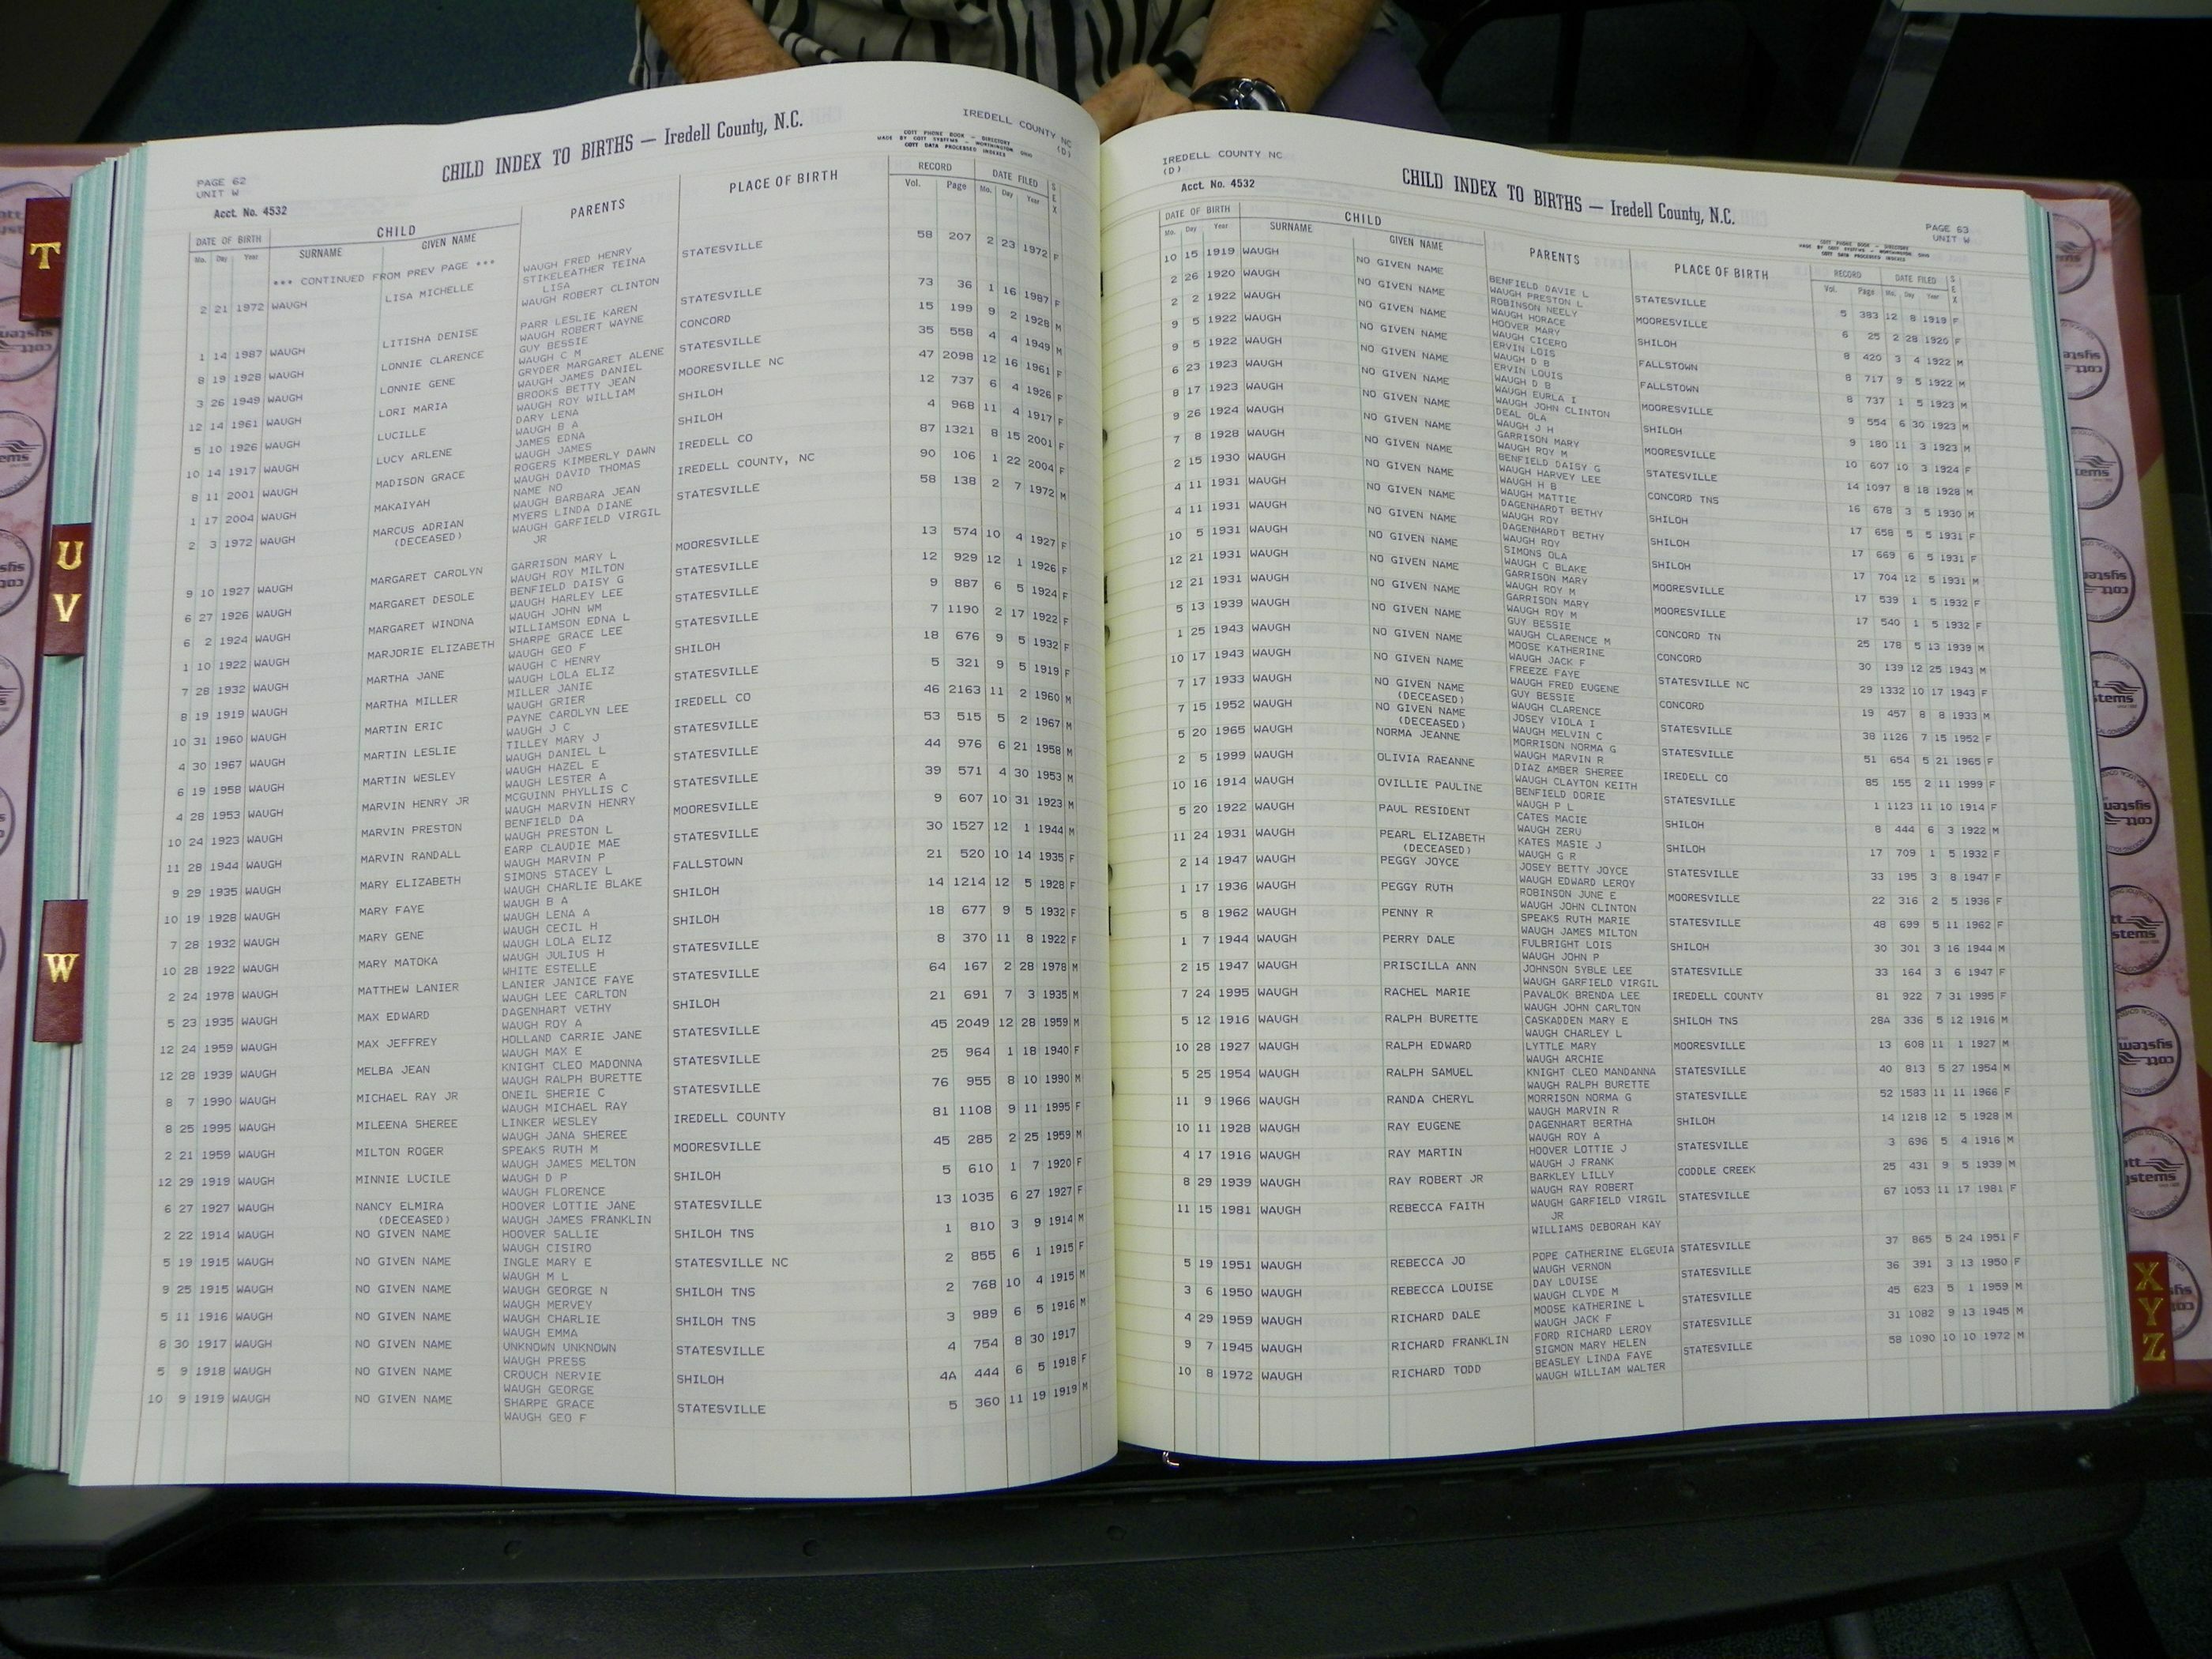 T
U
V
W
X
Y
Z
PAGE 62
UNIT W
CHILD INDEX TO BIRTHS — Iredell County, N.C.
IREDELL COUNTY NC
(D)
COTT PHONE BOOK - DIRECTORY
MADE BY COTT SYSTEMS - WORTHINGTON OHIO
COTT DATA PROCESSED INDEXES
Acct. No. 4532
DATE OF BIRTH CHILD PARENTS PLACE OF BIRTH RECORD DATE FILED SEX
Mo. Day Year SURNAME GIVEN NAME Vol. Page Mo. Day Year
*** CONTINUED FROM PREV PAGE ***
WAUGH FRED HENRY
2 21 1972 WAUGH LISA MICHELLE STIKELEATHER TEINA STATESVILLE 58 207 2 23 1972 F
LISA
WAUGH ROBERT CLINTON
1 14 1987 WAUGH LITISHA DENISE PARR LESLIE KAREN STATESVILLE 73 36 1 16 1987 F
WAUGH ROBERT WAYNE
8 19 1928 WAUGH LONNIE CLARENCE GUY BESSIE CONCORD 15 199 9 2 1928 M
WAUGH C M
3 26 1949 WAUGH LONNIE GENE GRYDER MARGARET ALENE STATESVILLE 35 558 4 4 1949 M
WAUGH JAMES DANIEL
12 14 1961 WAUGH LORI MARIA BROOKS BETTY JEAN MOORESVILLE NC 47 2098 12 16 1961 F
WAUGH ROY WILLIAM
5 10 1926 WAUGH LUCILLE DARY LENA SHILOH 12 737 6 4 1926 F
WAUGH B A
10 14 1917 WAUGH LUCY ARLENE JAMES EDNA SHILOH 4 968 11 4 1917 F
WAUGH JAMES
8 11 2001 WAUGH MADISON GRACE ROGERS KIMBERLY DAWN IREDELL CO 87 1321 8 15 2001 F
WAUGH DAVID THOMAS
1 17 2004 WAUGH MAKAIYAH NAME NO IREDELL COUNTY, NC 90 106 1 22 2004 F
WAUGH BARBARA JEAN
2 3 1972 WAUGH MARCUS ADRIAN MYERS LINDA DIANE STATESVILLE 58 138 2 7 1972 M
(DECEASED) WAUGH GARFIELD VIRGIL
JR
9 10 1927 WAUGH MARGARET CAROLYN GARRISON MARY L MOORESVILLE 13 574 10 4 1927 F
WAUGH ROY MILTON
6 27 1926 WAUGH MARGARET DESOLE BENFIELD DAISY G STATESVILLE 12 929 12 1 1926 F
WAUGH HARLEY LEE
6 2 1924 WAUGH MARGARET WINONA WAUGH JOHN WM STATESVILLE 9 887 6 5 1924 F
WILLIAMSON EDNA L
1 10 1922 WAUGH MARJORIE ELIZABETH SHARPE GRACE LEE STATESVILLE 7 1190 2 17 1922 F
WAUGH GEO F
7 28 1932 WAUGH MARTHA JANE WAUGH C HENRY SHILOH 18 676 9 5 1932 F
WAUGH LOLA ELIZ
8 19 1919 WAUGH MARTHA MILLER MILLER JANIE STATESVILLE 5 321 9 5 1919 F
WAUGH GRIER
10 31 1960 WAUGH MARTIN ERIC PAYNE CAROLYN LEE IREDELL CO 46 2163 11 2 1960 M
WAUGH J C
4 30 1967 WAUGH MARTIN LESLIE TILLEY MARY J STATESVILLE 53 515 5 2 1967 M
WAUGH DANIEL L
6 19 1958 WAUGH MARTIN WESLEY WAUGH HAZEL E STATESVILLE 44 976 6 21 1958 M
WAUGH LESTER A
4 28 1953 WAUGH MARVIN HENRY JR MCGUINN PHYLLIS C STATESVILLE 39 571 4 30 1953 M
WAUGH MARVIN HENRY
10 24 1923 WAUGH MARVIN PRESTON BENFIELD DA MOORESVILLE 9 607 10 31 1923 M
WAUGH PRESTON L
11 28 1944 WAUGH MARVIN RANDALL EARP CLAUDIE MAE STATESVILLE 30 1527 12 1 1944 M
WAUGH MARVIN P
9 29 1935 WAUGH MARY ELIZABETH SIMONS STACEY L FALLSTOWN 21 520 10 14 1935 F
WAUGH CHARLIE BLAKE
10 19 1928 WAUGH MARY FAYE WAUGH B A SHILOH 14 1214 12 5 1928 F
WAUGH LENA A
7 28 1932 WAUGH MARY GENE WAUGH CECIL H SHILOH 18 677 9 5 1932 F
WAUGH LOLA ELIZ
10 28 1922 WAUGH MARY MATOKA WAUGH JULIUS H STATESVILLE 8 370 11 8 1922 F
WHITE ESTELLE
2 24 1978 WAUGH MATTHEW LANIER LANIER JANICE FAYE STATESVILLE 64 167 2 28 1978 M
WAUGH LEE CARLTON
5 23 1935 WAUGH MAX EDWARD DAGENHART VETHY SHILOH 21 691 7 3 1935 M
WAUGH ROY A
12 24 1959 WAUGH MAX JEFFREY HOLLAND CARRIE JANE STATESVILLE 45 2049 12 28 1959 M
WAUGH MAX E
12 28 1939 WAUGH MELBA JEAN KNIGHT CLEO MADONNA STATESVILLE 25 964 1 18 1940 F
WAUGH RALPH BURETTE
8 7 1990 WAUGH MICHAEL RAY JR ONEIL SHERIE C STATESVILLE 76 955 8 10 1990 M
WAUGH MICHAEL RAY
8 25 1995 WAUGH MILEENA SHEREE LINKER WESLEY IREDELL COUNTY 81 1108 9 11 1995 F
WAUGH JANA SHEREE
2 21 1959 WAUGH MILTON ROGER SPEAKS RUTH M MOORESVILLE 45 285 2 25 1959 M
WAUGH JAMES MELTON
12 29 1919 WAUGH MINNIE LUCILE WAUGH D P SHILOH 5 610 1 7 1920 F
WAUGH FLORENCE
6 27 1927 WAUGH NANCY ELMIRA HOOVER LOTTIE JANE STATESVILLE 13 1035 6 27 1927 F
(DECEASED) WAUGH JAMES FRANKLIN
2 22 1914 WAUGH NO GIVEN NAME HOOVER SALLIE SHILOH TNS 1 810 3 9 1914 M
WAUGH CISIRO
5 19 1915 WAUGH NO GIVEN NAME INGLE MARY E STATESVILLE NC 2 855 6 1 1915 F
WAUGH M L
9 25 1915 WAUGH NO GIVEN NAME WAUGH GEORGE N SHILOH TNS 2 768 10 4 1915 M
WAUGH MERVEY
5 11 1916 WAUGH NO GIVEN NAME WAUGH CHARLIE SHILOH TNS 3 989 6 5 1916 M
WAUGH EMMA
8 30 1917 WAUGH NO GIVEN NAME UNKNOWN UNKNOWN STATESVILLE 4 754 8 30 1917
WAUGH PRESS
5 9 1918 WAUGH NO GIVEN NAME CROUCH NERVIE SHILOH 4A 444 6 5 1918 F
WAUGH GEORGE
10 9 1919 WAUGH NO GIVEN NAME SHARPE GRACE STATESVILLE 5 360 11 19 1919 M
WAUGH GEO F
IREDELL COUNTY NC
(D)
Acct. No. 4532
CHILD INDEX TO BIRTHS — Iredell County, N.C.
PAGE 63
UNIT W
COTT PHONE BOOK - DIRECTORY
MADE BY COTT SYSTEMS - WORTHINGTON OHIO
COTT DATA PROCESSED INDEXES
DATE OF BIRTH CHILD PARENTS PLACE OF BIRTH RECORD DATE FILED SEX
Mo. Day Year SURNAME GIVEN NAME Vol. Page Mo. Day Year
10 15 1919 WAUGH NO GIVEN NAME BENFIELD DAVIE L STATESVILLE 5 383 12 8 1919 F
WAUGH PRESTON L
2 26 1920 WAUGH NO GIVEN NAME ROBINSON NEELY MOORESVILLE 6 25 2 28 1920 F
WAUGH HORACE
2 2 1922 WAUGH NO GIVEN NAME HOOVER MARY SHILOH 8 420 3 4 1922 M
WAUGH CICERO
9 5 1922 WAUGH NO GIVEN NAME ERVIN LOIS FALLSTOWN 8 717 9 5 1922 M
WAUGH D B
9 5 1922 WAUGH NO GIVEN NAME ERVIN LOUIS FALLSTOWN 8 737 1 5 1923 M
WAUGH D B
6 23 1923 WAUGH NO GIVEN NAME WAUGH EURLA I MOORESVILLE 9 554 6 30 1923 M
WAUGH JOHN CLINTON
8 17 1923 WAUGH NO GIVEN NAME DEAL OLA SHILOH 9 180 11 3 1923 M
WAUGH J H
9 26 1924 WAUGH NO GIVEN NAME GARRISON MARY MOORESVILLE 10 607 10 3 1924 F
WAUGH ROY M
7 8 1928 WAUGH NO GIVEN NAME BENFIELD DAISY G STATESVILLE 14 1097 8 18 1928 M
WAUGH HARVEY LEE
2 15 1930 WAUGH NO GIVEN NAME WAUGH H B CONCORD TNS 16 678 3 5 1930 M
WAUGH MATTIE
4 11 1931 WAUGH NO GIVEN NAME DAGENHARDT BETHY SHILOH 17 658 5 5 1931 F
WAUGH ROY
4 11 1931 WAUGH NO GIVEN NAME DAGENHARDT BETHY SHILOH 17 669 6 5 1931 F
WAUGH ROY
10 5 1931 WAUGH NO GIVEN NAME SIMONS OLA SHILOH 17 704 12 5 1931 M
WAUGH C BLAKE
12 21 1931 WAUGH NO GIVEN NAME GARRISON MARY MOORESVILLE 17 539 1 5 1932 F
WAUGH ROY M
12 21 1931 WAUGH NO GIVEN NAME GARRISON MARY MOORESVILLE 17 540 1 5 1932 F
WAUGH ROY M
5 13 1939 WAUGH NO GIVEN NAME GUY BESSIE CONCORD TN 25 178 5 13 1939 M
WAUGH CLARENCE M
1 25 1943 WAUGH NO GIVEN NAME MOOSE KATHERINE CONCORD 30 139 12 25 1943 M
WAUGH JACK F
10 17 1943 WAUGH NO GIVEN NAME FREEZE FAYE STATESVILLE NC 29 1332 10 17 1943 F
WAUGH FRED EUGENE
7 17 1933 WAUGH NO GIVEN NAME GUY BESSIE CONCORD 19 457 8 8 1933 M
(DECEASED) WAUGH CLARENCE
7 15 1952 WAUGH NO GIVEN NAME JOSEY VIOLA I STATESVILLE 38 1126 7 15 1952 F
(DECEASED) WAUGH MELVIN C
5 20 1965 WAUGH NORMA JEANNE MORRISON NORMA G STATESVILLE 51 654 5 21 1965 F
WAUGH MARVIN R
2 5 1999 WAUGH OLIVIA RAEANNE DIAZ AMBER SHEREE IREDELL CO 85 155 2 11 1999 F
WAUGH CLAYTON KEITH
10 16 1914 WAUGH OVILLIE PAULINE BENFIELD DORIE STATESVILLE 1 1123 11 10 1914 F
WAUGH P L
5 20 1922 WAUGH PAUL RESIDENT CATES MACIE SHILOH 8 444 6 3 1922 M
WAUGH ZERU
11 24 1931 WAUGH PEARL ELIZABETH KATES MASIE J SHILOH 17 709 1 5 1932 F
(DECEASED) WAUGH G R
2 14 1947 WAUGH PEGGY JOYCE JOSEY BETTY JOYCE STATESVILLE 33 195 3 8 1947 F
WAUGH EDWARD LEROY
1 17 1936 WAUGH PEGGY RUTH ROBINSON JUNE E MOORESVILLE 22 316 2 5 1936 F
WAUGH JOHN CLINTON
5 8 1962 WAUGH PENNY R SPEAKS RUTH MARIE STATESVILLE 48 699 5 11 1962 F
WAUGH JAMES MILTON
1 7 1944 WAUGH PERRY DALE FULBRIGHT LOIS SHILOH 30 301 3 16 1944 M
WAUGH JOHN P
2 15 1947 WAUGH PRISCILLA ANN JOHNSON SYBLE LEE STATESVILLE 33 164 3 6 1947 F
WAUGH GARFIELD VIRGIL
7 24 1995 WAUGH RACHEL MARIE PAVALOK BRENDA LEE IREDELL COUNTY 81 922 7 31 1995 F
WAUGH JOHN CARLTON
5 12 1916 WAUGH RALPH BURETTE CASKADDEN MARY E SHILOH TNS 28A 336 5 12 1916 M
WAUGH CHARLEY L
10 28 1927 WAUGH RALPH EDWARD LYTTLE MARY MOORESVILLE 13 608 11 1 1927 M
WAUGH ARCHIE
5 25 1954 WAUGH RALPH SAMUEL KNIGHT CLEO MANDANNA STATESVILLE 40 813 5 27 1954 M
WAUGH RALPH BURETTE
11 9 1966 WAUGH RANDA CHERYL MORRISON NORMA G STATESVILLE 52 1583 11 11 1966 F
WAUGH MARVIN R
10 11 1928 WAUGH RAY EUGENE DAGENHART BERTHA SHILOH 14 1218 12 5 1928 M
WAUGH ROY A
4 17 1916 WAUGH RAY MARTIN HOOVER LOTTIE J STATESVILLE 3 696 5 4 1916 M
WAUGH J FRANK
8 29 1939 WAUGH RAY ROBERT JR BARKLEY LILLY CODDLE CREEK 25 431 9 5 1939 M
WAUGH RAY ROBERT
11 15 1981 WAUGH REBECCA FAITH WAUGH GARFIELD VIRGIL STATESVILLE 67 1053 11 17 1981 F
JR
WILLIAMS DEBORAH KAY
5 19 1951 WAUGH REBECCA JO POPE CATHERINE ELGEUIA STATESVILLE 37 865 5 24 1951 F
WAUGH VERNON
3 6 1950 WAUGH REBECCA LOUISE DAY LOUISE STATESVILLE 36 391 3 13 1950 F
WAUGH CLYDE M
4 29 1959 WAUGH RICHARD DALE MOOSE KATHERINE L STATESVILLE 45 623 5 1 1959 M
WAUGH JACK F
9 7 1945 WAUGH RICHARD FRANKLIN FORD RICHARD LEROY STATESVILLE 31 1082 9 13 1945 M
SIGMON MARY HELEN
10 8 1972 WAUGH RICHARD TODD BEASLEY LINDA FAYE STATESVILLE 58 1090 10 10 1972 M
WAUGH WILLIAM WALTER